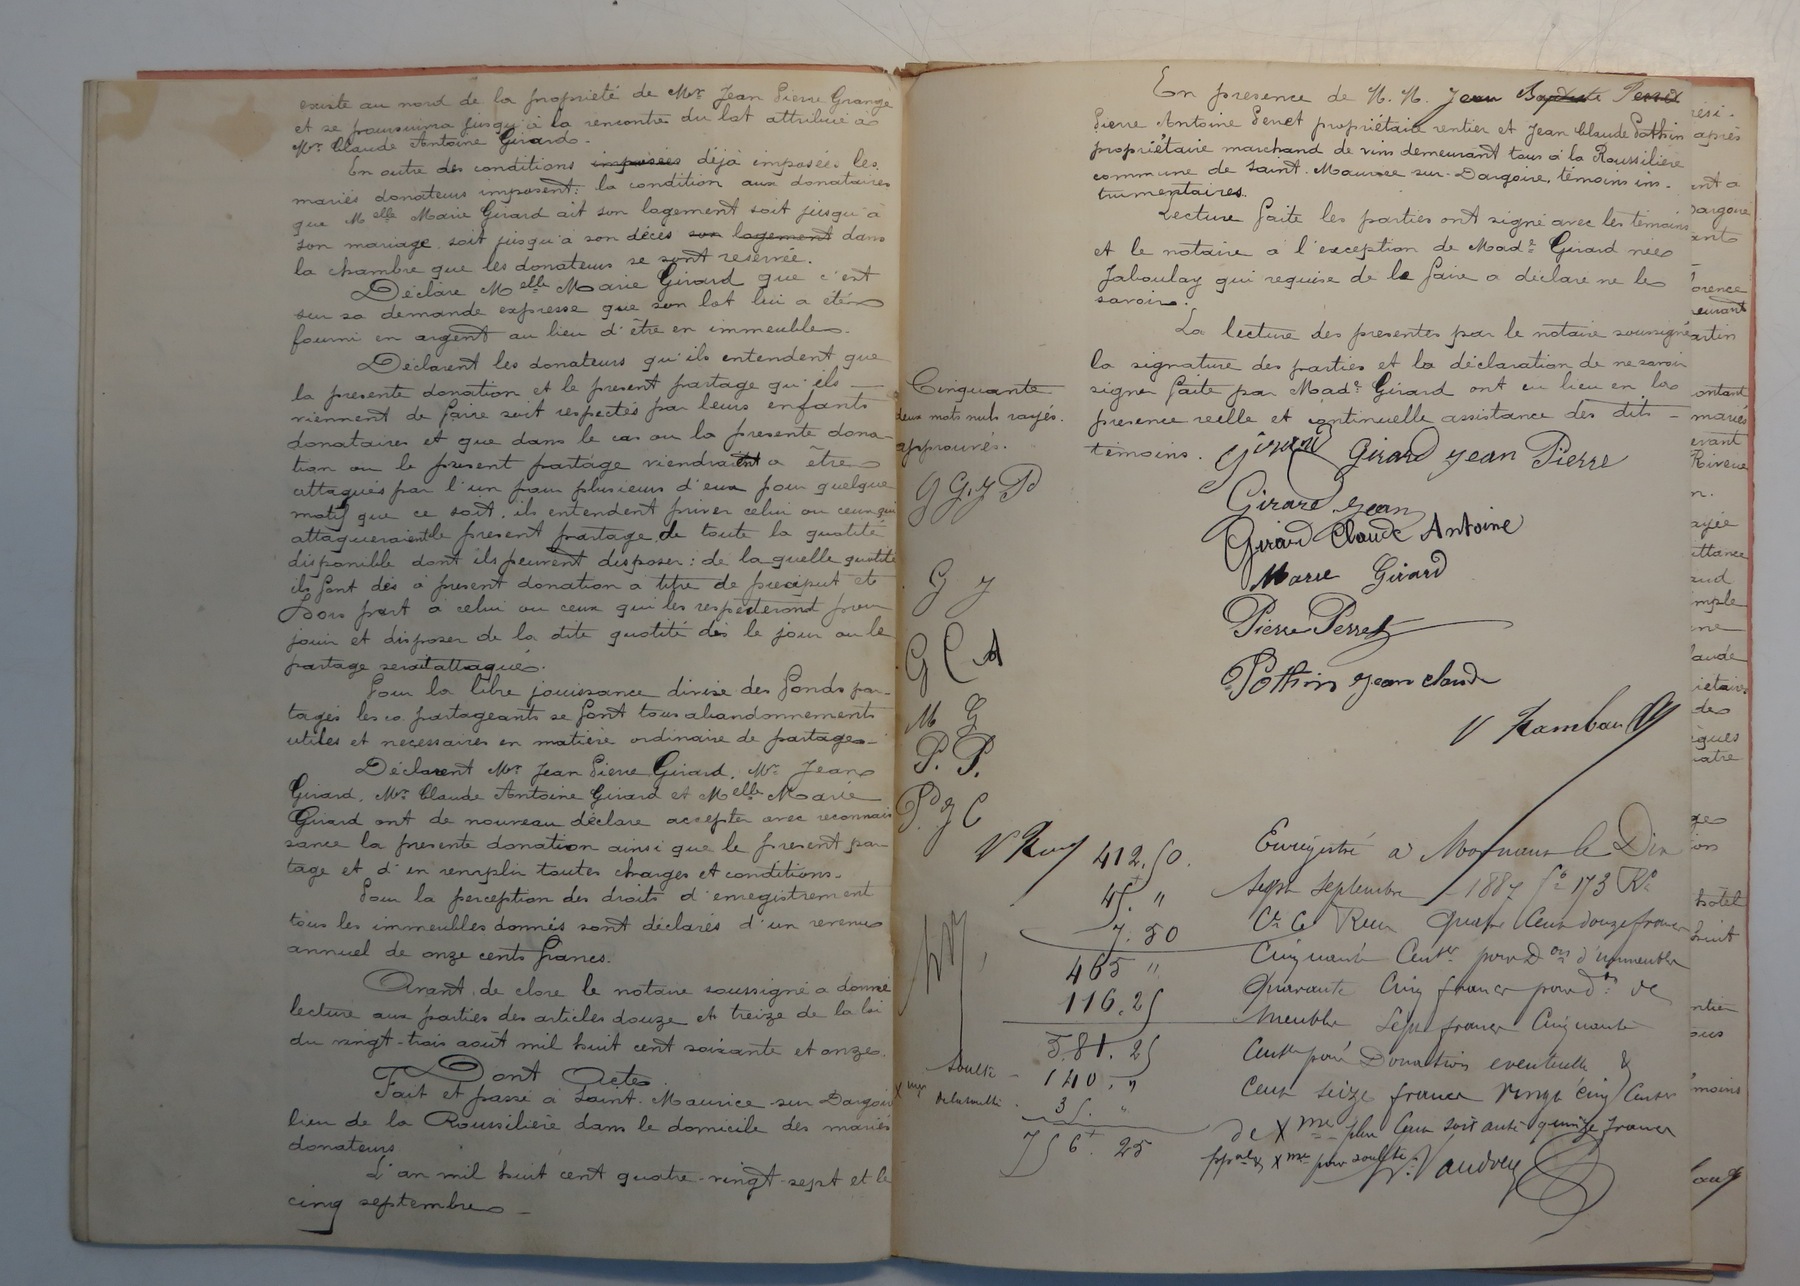 existe au nord de la propriété de Mr Jean Pierre Grange
et se poursuivra jusqu'à la rencontre du lot attribué à
Mr Claude Antoine Girard.
En outre des conditions imposées déjà imposées les
mariés donateurs imposent: la condition aux donataires
que Melle Marie Girard ait son logement soit jusqu'à
son mariage, soit jusqu'à son décès son logement dans
la chambre que les donateurs se sont réservée.
Déclare Melle Marie Girard que c'est
sur sa demande expresse que son lot lui a été
fourni en argent au lieu d'être en immeubles.
Déclarent les donateurs qu'ils entendent que
la présente donation et le présent partage qu'ils
viennent de faire soit respectés par leurs enfants
donataires et que dans le cas ou la présente dona-
tion ou le présent partage viendraient a être
attaqués par l'un pou plusieurs d'eux pour quelque
motif que ce soit, ils entendent priver celui ou ceux qui
attaqueraient le présent partage de toute la quotité
disponible dont ils peuvent disposer: de la quelle quotité
ils font dès à présent donation a titre de préciput et
hors part à celui ou ceux qui les respecteront pour
jouir et disposer de la dite quotité dès le jour ou le
partage serait attaqué.
Pour la libre jouissance divise des fonds par-
tagés les co. partageants se font tous abandonnements
utiles et nécessaires en matière ordinaire de partage.
Déclarent Mr Jean Pierre Girard, Mr Jean
Girard, Mr Claude Antoine Girard et Melle Marie
Girard ont de nouveau déclaré accepter avec reconnais
sance la présente donation ainsi que le présent par
tage et d'en remplir toutes charges et conditions.
Pour la perception des droits d'enregistrement
tous les immeubles donnés sont déclarés d'un revenu
annuel de onze cents francs.
Avant de clore le notaire soussigné a donné
lecture aux parties des articles douze et treize de la loi
du vingt-trois août mil huit cent soixante et onze.
Dont Acte
Fait et passé à Saint-Maurice-sur-Dargoire
lieu de la Roussilière dans le domicile des mariés
donateurs
L'an mil huit cent quatre-vingt-sept et le
cinq septembre
En présence de M. M. Jean Baptiste Perret
Pierre Antoine Perret propriétaire rentier et Jean Claude Pothin
propriétaire marchand de vins demeurant tous à la Roussilière
commune de Saint-Maurice-sur-Dargoire, témoins ins-
trumentaires.
Lecture faite les parties ont signé avec les témoins
et le notaire a l'exception de Made Girard née
Jaboulay qui requise de le faire a déclaré ne le
savoir.
La lecture des présentes par le notaire soussigné
la signature des parties et la déclaration de ne savoir
signer faite par Made Girard ont eu lieu en la
présence réelle et continuelle assistance des dits
témoins.
Cinquante
deux mots nuls rayés.
approuvés.
Girard Girard Jean Pierre
G G. J P
Girard Jean
Girard Claude Antoine
G J
Marie Girard
Pierre Perret
G C A
Pothin Jean Claude
M G
V Rambaud
P. P.
P J C
Enregistré a Mornant le Dix
Sept Septembre 1887 fo 173 Ro
Ce 6 Reçu quatre cent douze francs
Cinquante Centes pour Don d'immeubles
Quarante Cinq francs pour do de
Meubles Sept francs Cinquante
Centes pour Donation éventuelle &
Cent seize francs vingt cinq Centes
de Xmes plus Cent soixante quinze francs
ppal & Xmes pour soulte. Vaudrey
412.50.
45. "
7.50
465 "
116.25
581.25
Soulte 140. "
Xmes de la soulte 35. "
756. 25